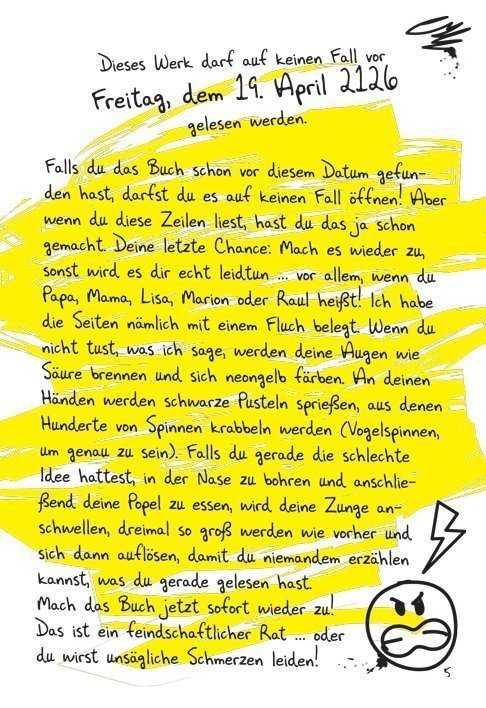 Dieses Werk darf auf keinen Fall vor
Freitag, dem 19. April 2126
gelesen werden.
Falls du das Buch schon vor diesem Datum gefun-
den hast, darfst du es auf keinen Fall öffnen! Aber
wenn du diese Zeilen liest, hast du das ja schon
gemacht. Deine letzte Chance: Mach es wieder zu,
sonst wird es dir echt leidtun ... vor allem, wenn du
Papa, Mama, Lisa, Marion oder Raul heißt! Ich habe
die Seiten nämlich mit einem Fluch belegt. Wenn du
nicht tust, was ich sage, werden deine Augen wie
Säure brennen und sich neongelb färben. An deinen
Händen werden schwarze Pusteln sprießen, aus denen
Hunderte von Spinnen krabbeln werden (Vogelspinnen,
um genau zu sein). Falls du gerade die schlechte
Idee hattest, in der Nase zu bohren und anschlie-
ßend deine Popel zu essen, wird deine Zunge an-
schwellen, dreimal so groß werden wie vorher und
sich dann auflösen, damit du niemandem erzählen
kannst, was du gerade gelesen hast.
Mach das Buch jetzt sofort wieder zu!
Das ist ein feindschaftlicher Rat ... oder
du wirst unsägliche Schmerzen leiden!
5